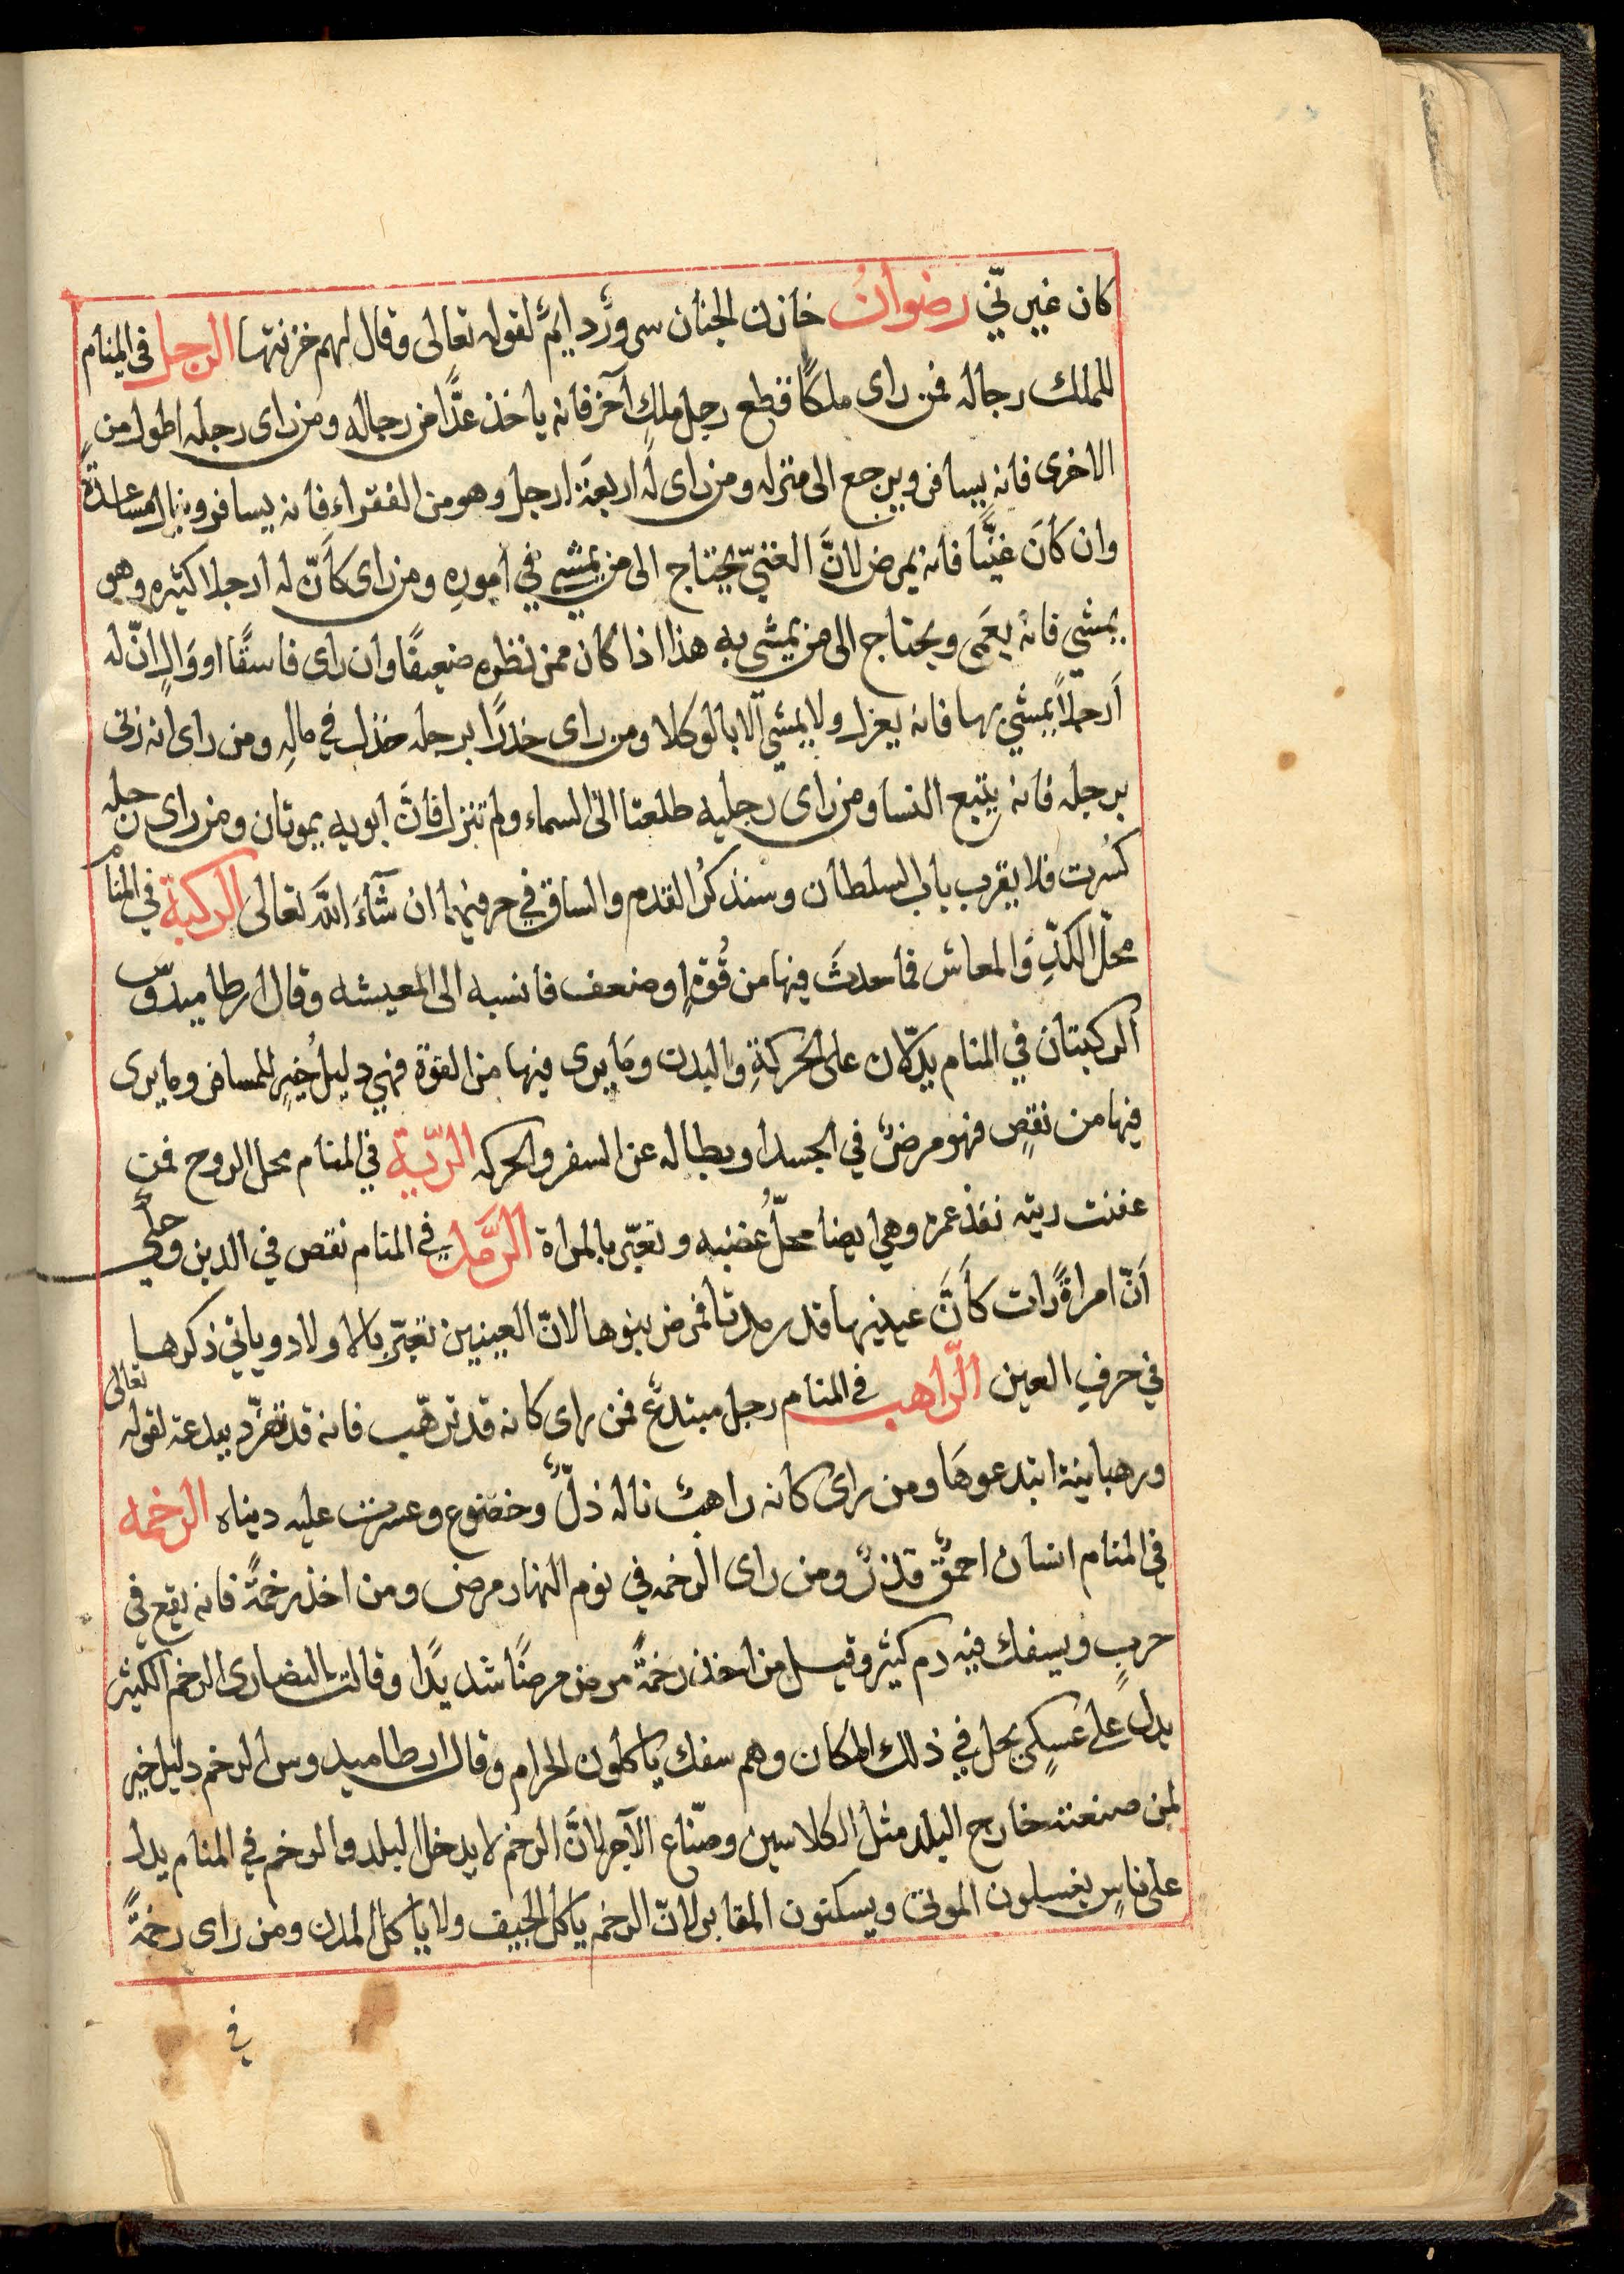 كان غير نّي رضوانُ خازن الجنان سرورٌ دايمٌ لقوله تعالى وقال لهم خزنتها الرجل في المنام
للملك رجاله فمن راى ملكًا قطع رجل ملكٍ آخر فانه ياخذ عدًّا من رجاله ومن راى رجله اطول من
الاخرى فانه يسافر ويرجع الى منزله ومن راى له اربعة ارجل وهو من الفقراء فانه يسافر وينال مساعدةً
وان كَانَ غنيًّا فانه يمرض لانَّ الغنيّ يحتاج الى من يمشي في امورِه ومن راى كَانّ له ارجلا كثيره وهو
يمشي فانه يعَمى ويحتاج الى من يمشي به هذا اذا كان ممن نظره ضعيفًا وان راى فاسقًا او وَالٍ انّ له
اَرجلاً يمشي بها فانه يعزل ولا يمشي الّا بالوكلا ومن راى خدرًا برجله خذل في مالِه ومن راى انه زنى
برجله فانه يتبع النسا ومن راى رجليه طلعتا الى السماء ولم تنزل فانَّ ابويه يموتان ومن راى رجله
كسُرت فلا يقرب باب السلطان وسنذكرُ القدم والساق في حرفيهما ان شآءَ اللَّه تعالى الركبة في المنام
محلّ الكدِّ وَالمعاش فما حدثَ فيها من قُوّةٍ او ضعف فانسبه الى المعيشه وقال ارطاميدوس
الركبتان في المنام يدلّان على الحركةِ والبدن وَما يرى فيها من القوّة فهي دليلُ خيرٍ للمسافر وما يرى
فيها من نقصٍ فهو مرضٌ في الجسد او بطاله عن السفر والحركه الرّية في المنام محل الروح فمن
عفنت ريته نفذ عمره وهي ايضا محلّ غضبه وتعبّر بالمراة الرَّمد في المنام نقص في الدين وحكي
اَنّ امراةً رات كَانَّ عينيها قد رمدتا فمرض بنوها لانّ العينين تعبّر بالاولاد وياتي ذكرها
في حرفِ العين الرّاهب في المنام رجل مبتدعٌ فمن راى كانه قد ترهّب فانه قد تفرّد ببدعة لقوله تعالى
ورهبانية ابتدعوهَا ومن راى كانه راهبٌ ناله ذلٌّ وخضوع وعسرت عليه دنياه الرخمه
في المنام انسان احمقٌ قذرٌ ومن راى الرخمه في نوم النهار مرض ومن اخذ رخمةً فانه يقع في
حربٍ ويسفك فيه دم كثير وقيل من اخذ رخمةً مرض مرضًا شديدًا وقالت النصارى الرخم الكثير
يدل على عسكرٍ يحل في ذلك المكان وهم سفك ياكلون الحرام وقال ارطاميدوس الرخم دليل خير
لمن صنعته خارج البلد مثل الكلاسين وصنّاع الآجر لانَّ الرخم لا يدخل البلد والرخم في المنام يدل
على ناسٍ يغسلون الموتى ويسكنون المقابر لانّ الرخم ياكل الجيف ولا ياكل المدن ومن راى رخمةً
في